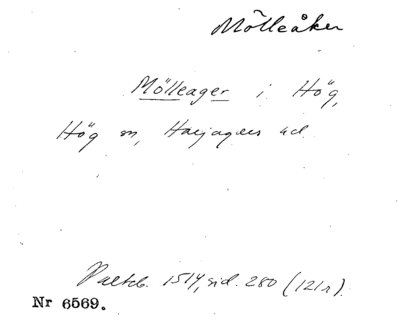 Mölleåker
Mölleager i Hög,
Hög sn, Harjagers hd.
Palteb. 1514, sid. 280 (121r).
Nr 6569.